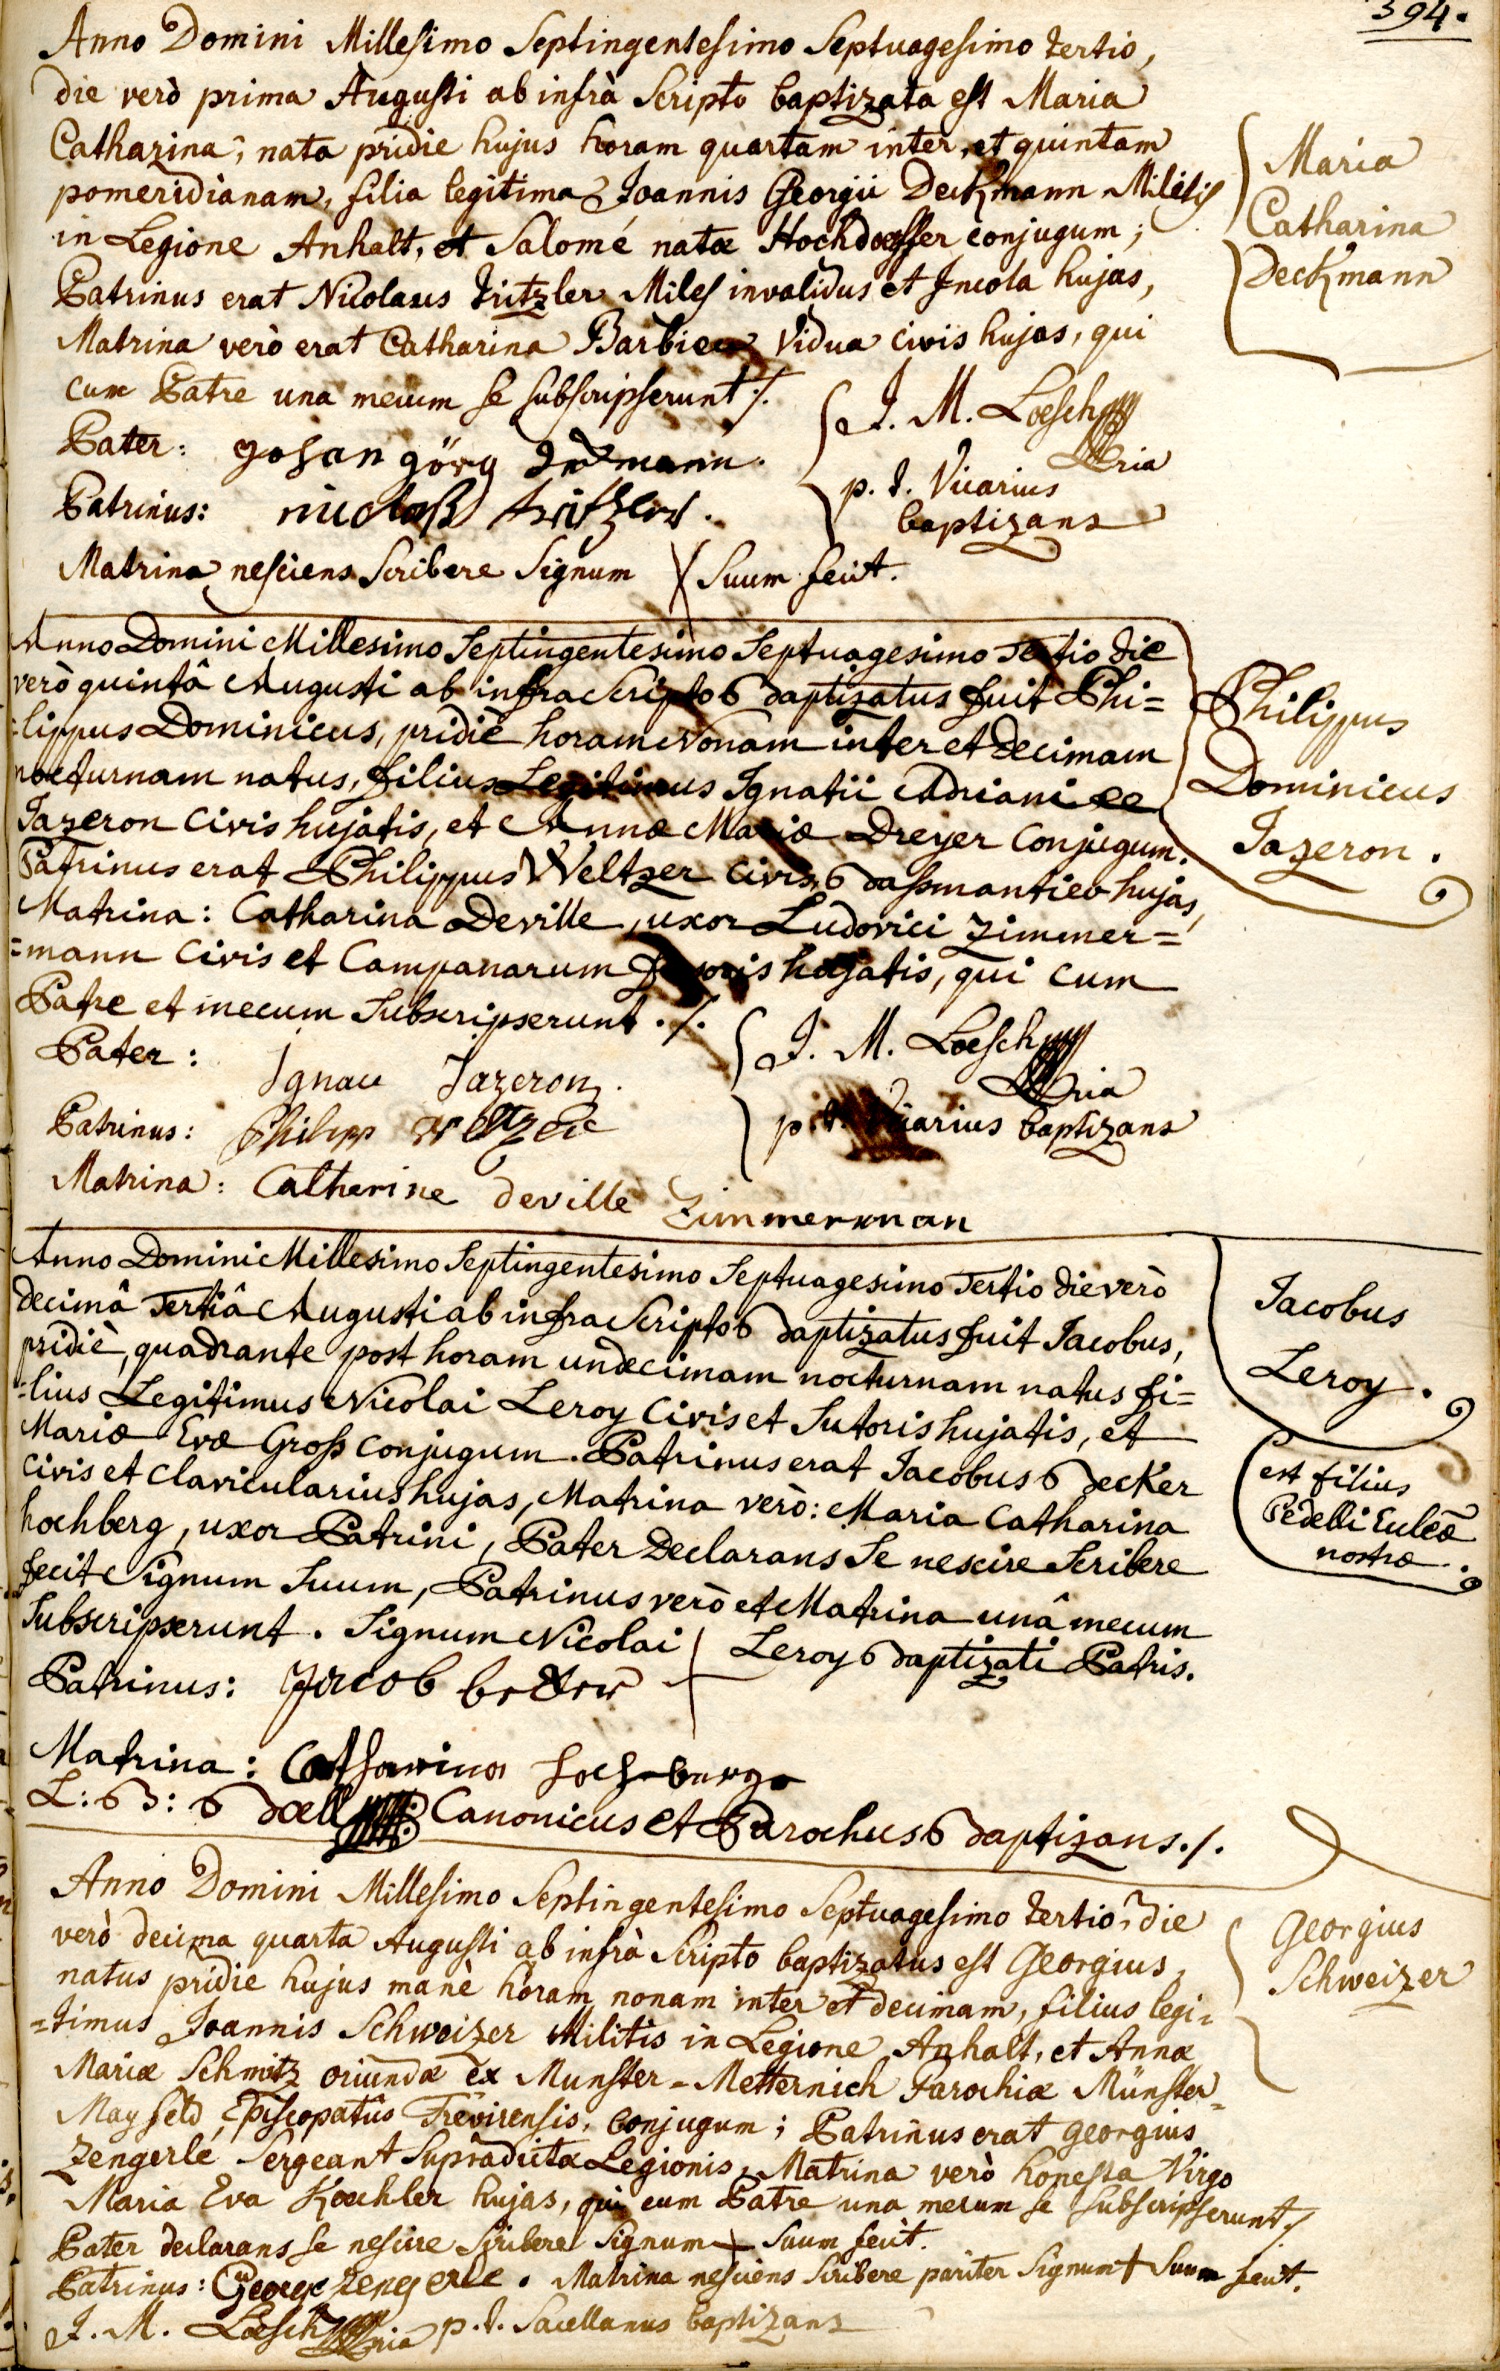 394.
Anno Domini Millesimo Septingentesimo Septuagesimo tertio,
die verò prima Augusti ab infrà Scripto baptizata est Maria
Catharina, nata pridie hujus horam quartam inter, et quintam
pomeridianam, filia legitima Joannis Georgii Deckmann Militis
in Legione Anhalt, et Salomé natæ Hochdoeffer conjugum;
Patrinus erat Nicolaus Tritzler Miles invalidus et Incola hujas,
Matrina verò erat Catharina Barbier Vidua civis hujas, qui
cum Patre una mecum se subscripserunt ./.
Maria
Catharina
Deckmann
Pater: Johan görg Deckmann.
Patrinus: niclaß tritzler.
Matrina nesciens Scribere Signum X Suum fecit.
J. M. Loesch
p. t. Vicarius
baptizans
Anno Domini Millesimo Septingentesimo Septuagesimo Tertio die
verò quintâ Augusti ab infra Scripto Baptizatus fuit Phi=
=lippus Dominicus, pridiè horam Nonam inter et Decimam
nocturnam natus, filius Legitimus Ignatii Adriani
Jazeron Civis hujatis, et Annæ Mariæ Dreyer Conjugum.
Patrinus erat Philippus Weltzer Civis, Bassmantier hujas,
Matrina: Catharina Deville, uxor Ludovici Zimmer=
=mann Civis et Campanarum hujatis, qui cum
Patre et mecum Subscripserunt ./.
Philippus
Dominicus
Jazeron.
Pater: Ignace Jazeron.
Patrinus: Philipp Weltzer
Matrina: Catherine deville Zimmerman
J. M. Loesch
p. t. Vicarius baptizans
Anno Domini Millesimo Septingentesimo Septuagesimo Tertio die verò
decimâ Tertiâ Augusti ab infra Scripto Baptizatus fuit Jacobus,
pridiè, quadrante post horam undecimam nocturnam natus fi=
=lius Legitimus Nicolai Leroy Civis et Sutoris hujatis, et
Mariæ Evæ Gross Conjugum. Patrinus erat Jacobus Becker
civis et Clavicularius hujas, Matrina verò: Maria Catharina
hochberg, uxor Patrini, Pater Declarans Se nescire Scribere
fecit Signum Suum, Patrinus verò et Matrina unâ mecum
Subscripserunt. Signum Nicolai + Leroy Baptizati Patris.
Jacobus
Leroy.
est filius
Pedelli
nostræ.
Patrinus: Jacob becker
Matrina: Catharina hochberge
L: B: Bœll Canonicus et Parochus Baptizans ./.
Anno Domini Millesimo Septingentesimo Septuagesimo tertio, die
verò decima quarta Augusti ab infrà Scripto baptizatus est Georgius,
natus pridie hujus manè horam nonam inter et decimam, filius legi=
=timus Joannis Schweizer Militis in Legione Anhalt, et Annæ
Mariæ Schmitz oriundæ ex Munster-Metternich Parochiæ Münster=
Mayfeld, Episcopatûs Trevirensis, conjugum; Patrinus erat Georgius
Zengerlé Sergeant Supradictæ Legionis, Matrina verò honesta Virgo
Maria Eva Koehler hujas, qui cum Patre una mecum se subscripserunt ./.
Georgius
Schweizer
Pater declarans se nescire Scribere Signum + Suum fecit.
Patrinus: George Zengerle. Matrina nesciens Scribere pariter Signum + Suum fecit.
J. M. Loesch p. t. Sacellanus baptizans